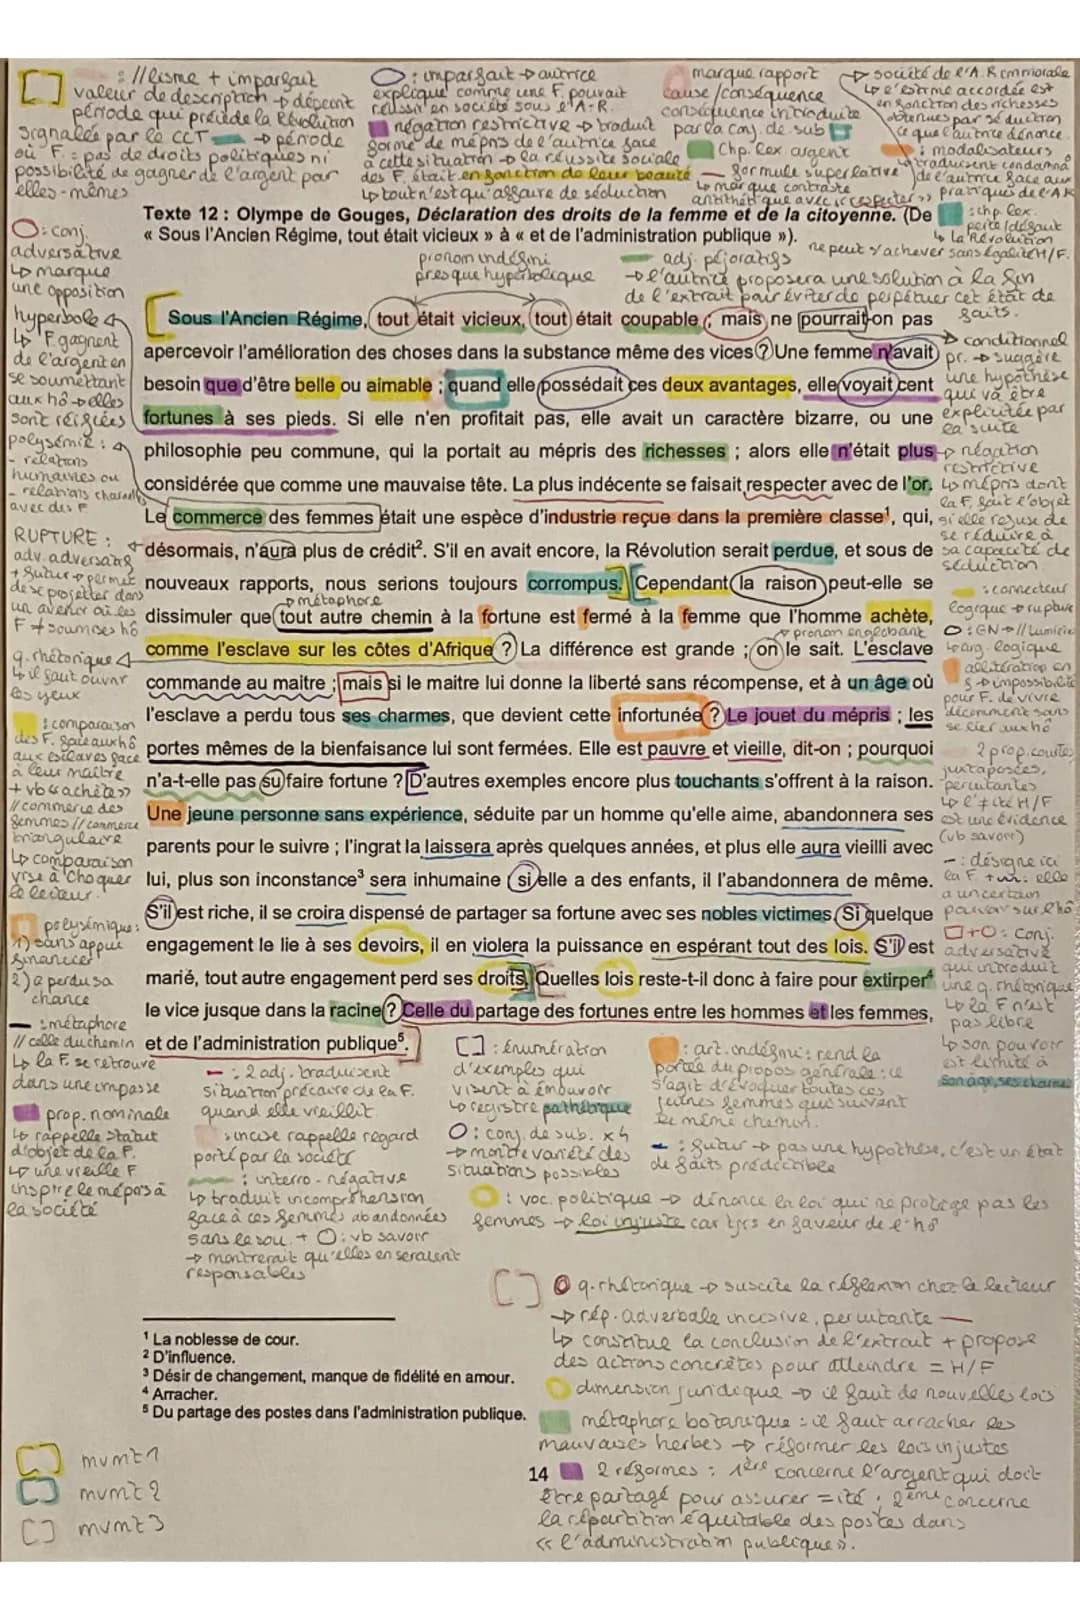 : //lisme + imparfait
valeur de description → dépeint
période qui précède la Révolution
signalées par le CCT → période
où F. = pas de droits politiques ni
possibilité de gagner de l'argent par
elles-mêmes
: imparfait → autrice
explique comme une F. pouvait
réussir en société sous l'A.R.
négation restrictive → traduit
forme de mépris de l'autrice face
à cette situation → la réussite sociale
des F. était en fonction de leur beauté
↳ tout n'est qu'affaire de séduction
marque rapport
cause/conséquence
conséquence introduite
par la conj. de sub
Chp. lex argent
formule superlative
↳ marque contraste
antithétique avec « respecter »
→ société de l'A.R immorale
↳ l'estime accordée est
en fonction des richesses
obtenues par séduction
ce que l'autrice dénonce.
: modalisateurs
↳ traduisent condamn°
de l'autrice face aux
pratiques de l'AR
: chp. lex.
perte/défaut
↳ la Révolution
ne peut s'achever sans égalité H/F.
Texte 12 : Olympe de Gouges, Déclaration des droits de la femme et de la citoyenne. (De
« Sous l'Ancien Régime, tout était vicieux » à « et de l'administration publique »).
pronom indéfini
presque hyperbolique
adj. péjoratifs
→ l'autrice proposera une solution à la fin
de l'extrait pour éviter de perpétuer cet état de
faits.
O : conj.
adversative
↳ marque
une opposition
hyperbole
↳ F gagnent
de l'argent en
se soumettant
aux hô → elles
sont réifiées
polysémie :
- relations
humaines ou
- relations charnelles
avec des F
RUPTURE :
adv. adversatif
+ futur → permet
de se projeter dans
un avenir où les
F ≠ soumises hô
q. rhétorique
↳ il faut ouvrir
les yeux
: comparaison
des F. face aux hô
aux esclaves face
à leur maître
+ vb « achète »
// commerce des
femmes // commerce
triangulaire
↳ comparaison
vise à choquer
le lecteur.
polysémique :
1) sans appui
financier
2) a perdu sa
chance
— : métaphore
// celle du chemin
↳ la F. se retrouve
dans une impasse
prop. nominale
↳ rappelle statut
d'objet de la F.
↳ une vieille F
inspire le mépris à
la société
Sous l'Ancien Régime, tout était vicieux, tout était coupable ; mais ne pourrait-on pas
apercevoir l'amélioration des choses dans la substance même des vices ? Une femme n'avait
besoin que d'être belle ou aimable ; quand elle possédait ces deux avantages, elle voyait cent
fortunes à ses pieds. Si elle n'en profitait pas, elle avait un caractère bizarre, ou une
philosophie peu commune, qui la portait au mépris des richesses ; alors elle n'était plus
considérée que comme une mauvaise tête. La plus indécente se faisait respecter avec de l'or.
Le commerce des femmes était une espèce d'industrie reçue dans la première classe¹, qui,
désormais, n'aura plus de crédit². S'il en avait encore, la Révolution serait perdue, et sous de
nouveaux rapports, nous serions toujours corrompus. Cependant la raison peut-elle se
→ métaphore
dissimuler que tout autre chemin à la fortune est fermé à la femme que l'homme achète,
→ pronom englobant
comme l'esclave sur les côtes d'Afrique ? La différence est grande ; on le sait. L'esclave
commande au maitre ; mais si le maitre lui donne la liberté sans récompense, et à un âge où
l'esclave a perdu tous ses charmes, que devient cette infortunée ? Le jouet du mépris ; les
portes mêmes de la bienfaisance lui sont fermées. Elle est pauvre et vieille, dit-on ; pourquoi
n'a-t-elle pas su faire fortune ? D'autres exemples encore plus touchants s'offrent à la raison.
Une jeune personne sans expérience, séduite par un homme qu'elle aime, abandonnera ses
parents pour le suivre ; l'ingrat la laissera après quelques années, et plus elle aura vieilli avec
lui, plus son inconstance³ sera inhumaine ; si elle a des enfants, il l'abandonnera de même.
S'il est riche, il se croira dispensé de partager sa fortune avec ses nobles victimes. Si quelque
engagement le lie à ses devoirs, il en violera la puissance en espérant tout des lois. S'il est
marié, tout autre engagement perd ses droits. Quelles lois reste-t-il donc à faire pour extirper⁴
le vice jusque dans la racine ? Celle du partage des fortunes entre les hommes et les femmes,
et de l'administration publique⁵.
→ conditionnel
pr. → suggère
une hypothèse
qui va être
explicitée par
la suite
→ négation
restrictive
↳ mépris dont
la F. fait l'objet
si elle refuse de
se réduire à
sa capacité de
séduction
: connecteur
logique → rupture
O : GN → // Lumières
↳ arg. logique
allitération en
f → impossibilité
pour F. de vivre
décemment sans
se lier aux hô
2 prop. courtes,
juxtaposées,
percutantes
↳ l'≠ité H/F
est une évidence
(vb savoir)
— : désigne ici
la F. : elle
a un certain
pouvoir sur l'hô
□ + O : conj.
adversative
qui introduit
une q. rhétorique
↳ la F n'est
pas libre
↳ son pouvoir
est limité à
son âge, ses charmes
— : 2 adj. traduisent
situation précaire de la F.
quand elle vieillit
: incise rappelle regard
porté par la société
: interro-négative
↳ traduit incompréhension
face à ces femmes abandonnées
sans le sou. + O : vb savoir
→ montrerait qu'elles en seraient
responsables
[ ] : énumération
d'exemples qui
visent à émouvoir
↳ registre pathétique
O : conj. de sub. x4
→ montre variété des
situations possibles
: art. indéfini : rend la
portée du propos générale : il
s'agit d'évoquer toutes ces
jeunes femmes qui suivent
le même chemin.
— : futur → pas une hypothèse, c'est un état
de faits prédictible
: voc. politique → dénonce la loi qui ne protège pas les
femmes → loi injuste car tjrs en faveur de l'hô
[ ] q. rhétorique → suscite la réflexion chez le lecteur
→ rép. adverbale incisive, percutante —
↳ constitue la conclusion de l'extrait + propose
des actions concrètes pour atteindre = H/F
dimension juridique → il faut de nouvelles lois
métaphore botanique : il faut arracher les
mauvaises herbes → réformer les lois injustes
2 réformes : 1ère concerne l'argent qui doit
être partagé pour assurer =ité, 2ème concerne
la répartition équitable des postes dans
« l'administration publique ».
¹ La noblesse de cour.
² D'influence.
³ Désir de changement, manque de fidélité en amour.
⁴ Arracher.
⁵ Du partage des postes dans l'administration publique.
14
[ ] mvmt 1
[ ] mvmt 2
[ ] mvmt 3